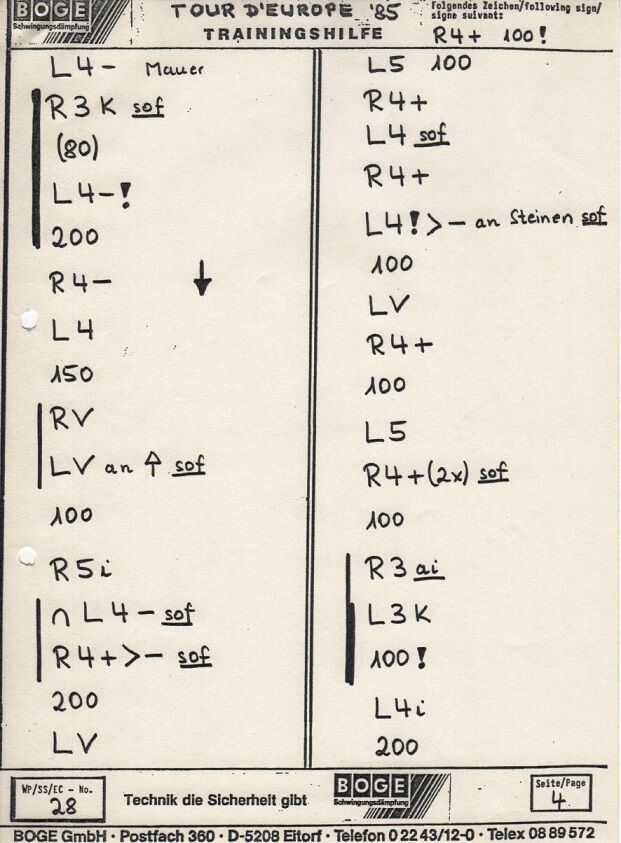 BOGE
Schwingungsdämpfung
TOUR D'EUROPE '85
TRAININGSHILFE
Folgendes Zeichen/following sign/
signe suivant:
R4+ 100!
L4- Mauer
R3K sof
(80)
L4-!
200
R4- ↓
L4
150
RV
LV an ↑ sof
100
R5i
∩ L4- sof
R4+>- sof
200
LV
L5 100
R4+
L4 sof
R4+
L4!>- an Steinen sof
100
LV
R4+
100
L5
R4+(2x) sof
100
R3 ai
L3K
100!
L4i
200
WP/SS/EC - No.
28
Technik die Sicherheit gibt
BOGE
Schwingungsdämpfung
Seite/Page
4
BOGE GmbH · Postfach 360 · D-5208 Eitorf · Telefon 0 22 43/12-0 · Telex 08 89 572